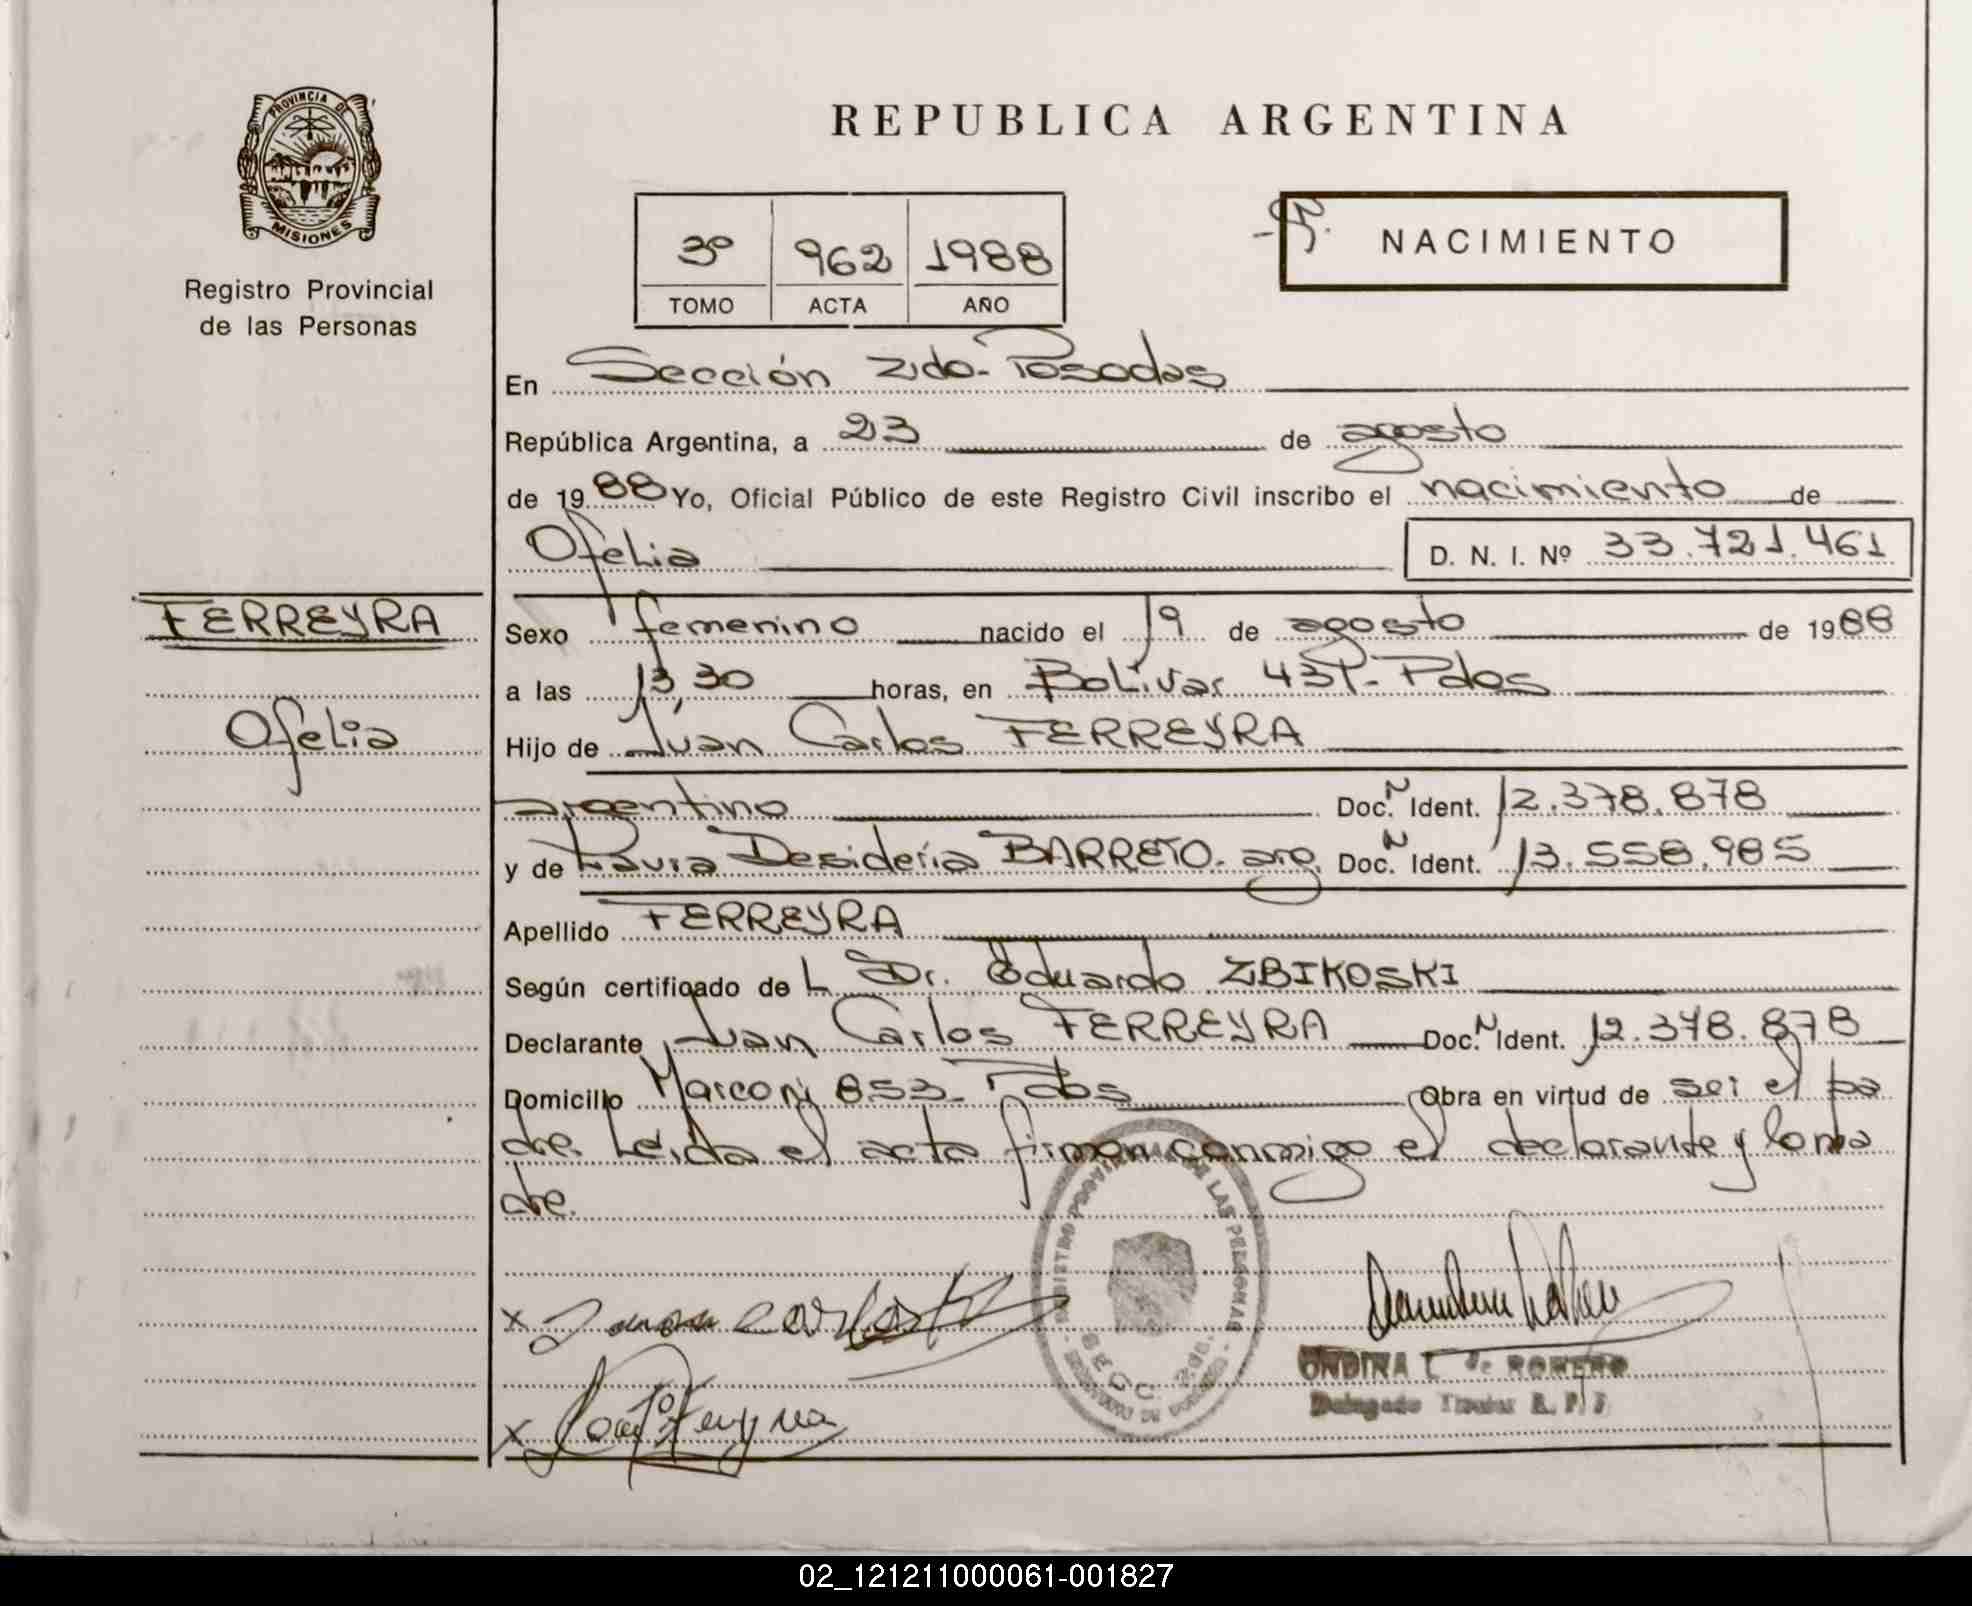 PROVINCIA DE
MISIONES
Registro Provincial
de las Personas
REPUBLICA ARGENTINA
3º 962 1988
TOMO ACTA AÑO
NACIMIENTO
En Sección 2da- Posadas
República Argentina, a 23 de agosto
de 1988 Yo, Oficial Público de este Registro Civil inscribo el nacimiento de
Ofelia D. N. I. Nº 33.721.461
FERREYRA
Ofelia
Sexo femenino nacido el 19 de agosto de 1988
a las 13,30 horas, en Bolívar Pdas
Hijo de Juan Carlos FERREYRA
argentino Doc. N Ident. 12.378.878
y de Desideria BARRETO- arg. Doc. N Ident. 13.558.985
Apellido FERREYRA
Según certificado de L Dr. Eduardo ZBIKOSKI
Declarante Juan Carlos FERREYRA Doc. N Ident. 12.378.878
Domicilio Marconi 853- Pdas Obra en virtud de ser el pa
dre. Leída el acta firman conmigo el declarante y la ma
dre.
REGISTRO PROVINCIAL DE LAS PERSONAS
SECC. 2da.
x Juan carlos
x
ONDINA L. de ROMERO
Delegado Titular R. P. P.
02_121211000061-001827